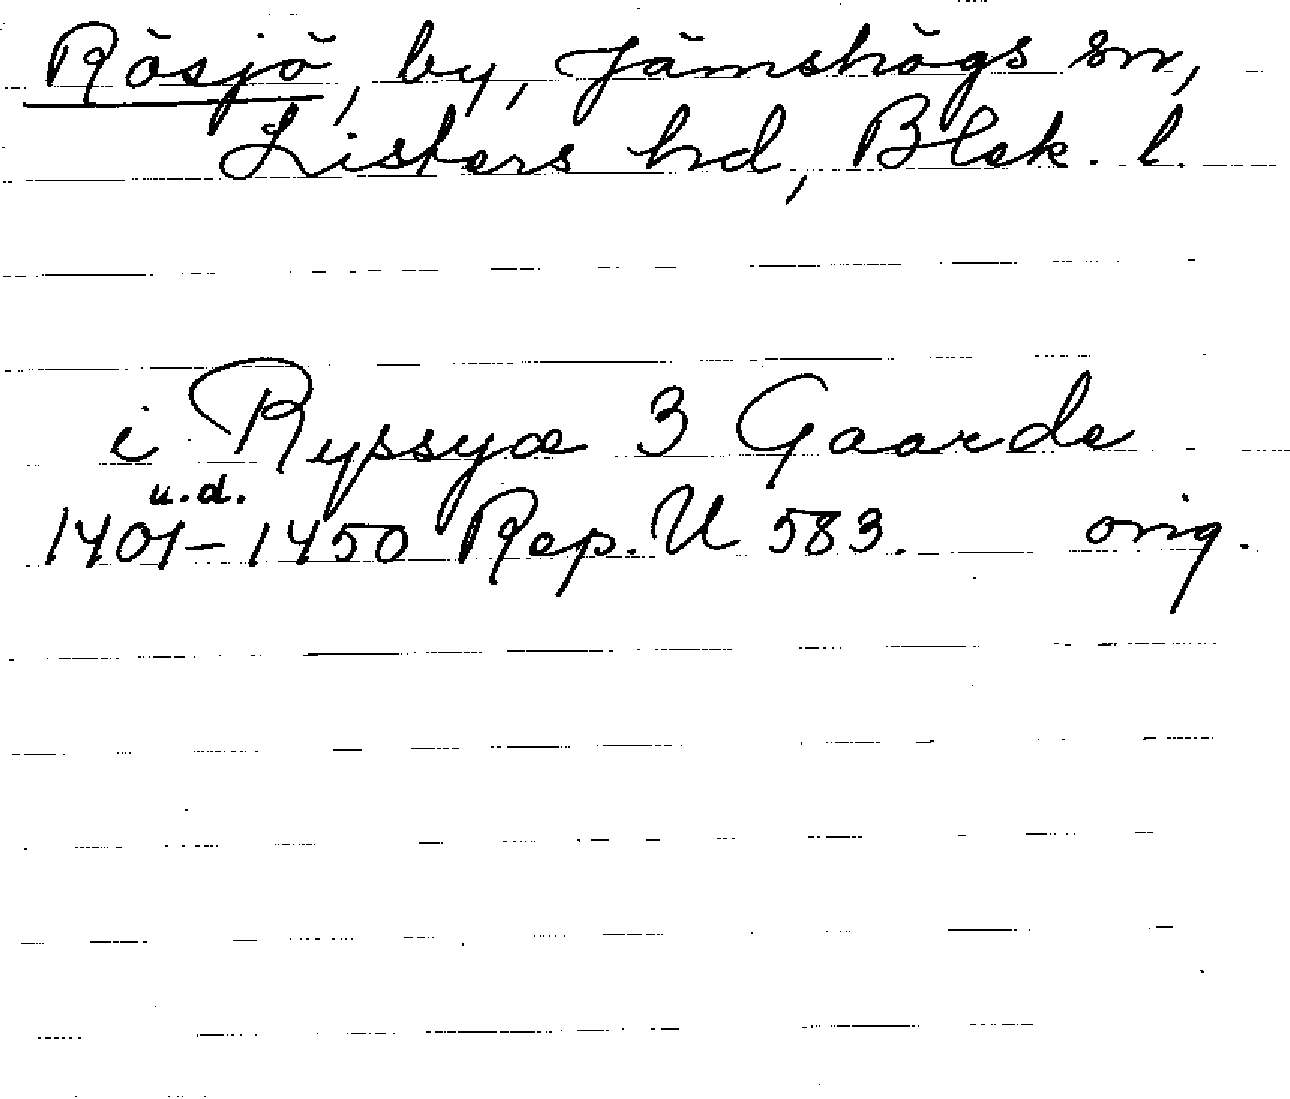 Rösjö, by, Jämshögs sn,
Listers hd, Blek. l.
i Ryssyæ 3 Gaarde
u.d.
1401-1450 Rep. U 583. orig.